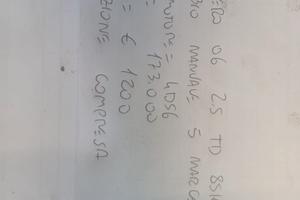 06 2.5 TD 85
MANUALE 5 MARC
MOTORE = 4D56
= 173.000
= € 1200
ZIONE COMPRESA